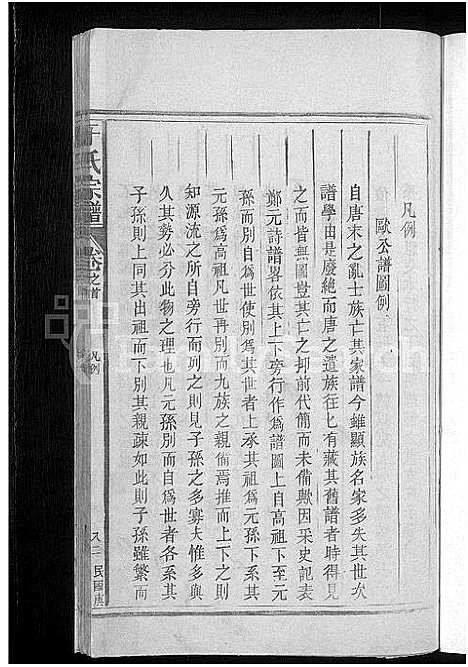 凡例
歐公譜圖例
自唐末之亂士族亡其家譜今雖顯族名家多失其世次
譜學由是廢絶而唐之遺族往匕有藏其舊譜者時得見
之而皆無圖豈其亡之抑前代簡而未備歟因采史記表
鄭元詩譜畧依其上下旁行作爲譜圖上自高祖下至元
孫而別自爲世使別爲其世者上承其祖爲元孫下系其
元孫爲高祖凡世再別而九族之親備焉推而上下之則
知源流之所自旁行而列之則見子孫之多寡夫惟多與
久其勢必分此物之理也凡元孫別而自爲世者各系其
子孫則上同其出祖而下別其親疎如此則子孫雖繁而
于氏宗譜
卷之首
凡例